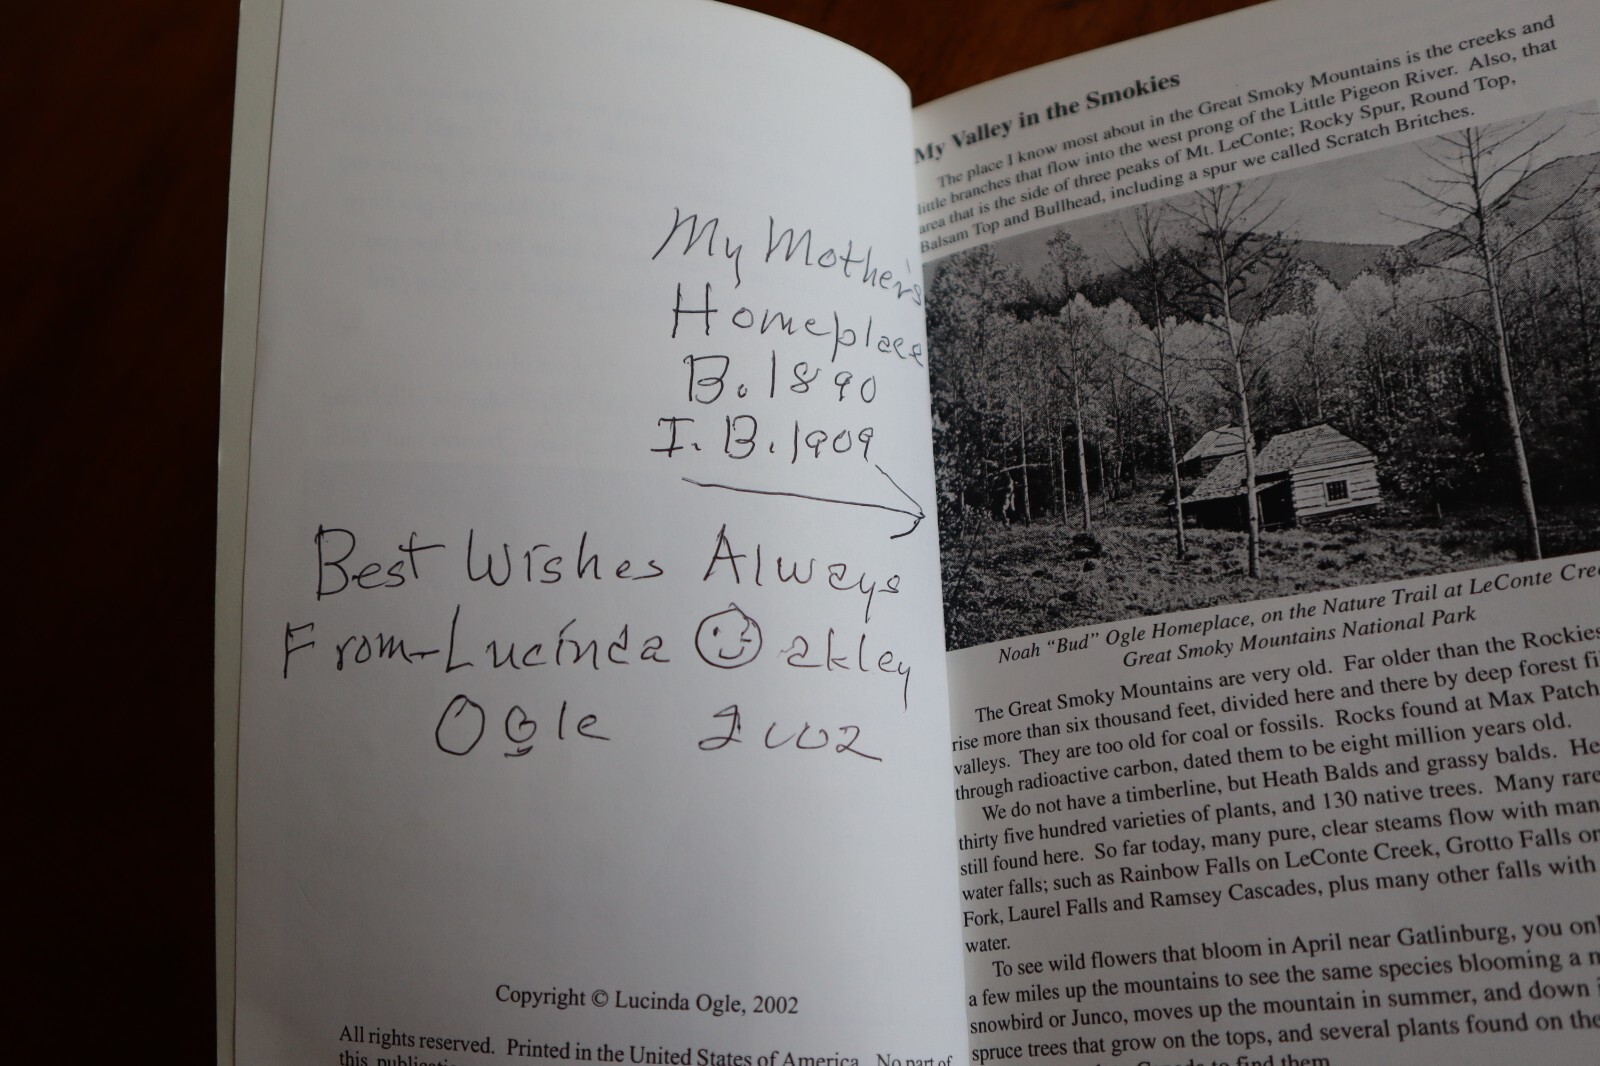 My Mother's
Homeplace
B. 1890
I. B. 1909
Best Wishes Always
From-Lucinda Oakley
Ogle 2002
Copyright © Lucinda Ogle, 2002
All rights reserved. Printed in the United States of America. No part of
this
My Valley in the Smokies
The place I know most about in the Great Smoky Mountains is the creeks and
little branches that flow into the west prong of the Little Pigeon River. Also, that
area that is the side of three peaks of Mt. LeConte; Rocky Spur, Round Top,
Balsam Top and Bullhead, including a spur we called Scratch Britches.
Noah “Bud” Ogle Homeplace, on the Nature Trail at LeConte Cree
Great Smoky Mountains National Park
The Great Smoky Mountains are very old. Far older than the Rockies
rise more than six thousand feet, divided here and there by deep forest fi
valleys. They are too old for coal or fossils. Rocks found at Max Patch
through radioactive carbon, dated them to be eight million years old.
We do not have a timberline, but Heath Balds and grassy balds. He
thirty five hundred varieties of plants, and 130 native trees. Many rare
still found here. So far today, many pure, clear steams flow with man
water falls; such as Rainbow Falls on LeConte Creek, Grotto Falls on
Fork, Laurel Falls and Ramsey Cascades, plus many other falls with
water.
To see wild flowers that bloom in April near Gatlinburg, you onl
a few miles up the mountains to see the same species blooming a m
snowbird or Junco, moves up the mountain in summer, and down i
spruce trees that grow on the tops, and several plants found on the
to find them